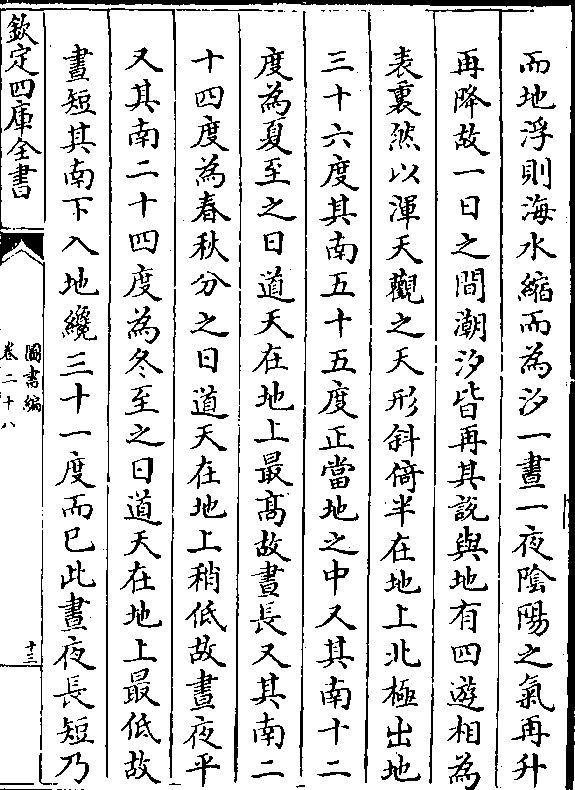 而地浮則海水縮而為汐一晝一夜陰陽之氣再升
再降故一日之間潮汐皆再其說與地有四遊相為
表裏然以渾天觀之天形斜倚半在地上北極出地
三十六度其南五十五度正當地之中又其南十二
度為夏至之日道天在地上最髙故晝長又其南二
十四度為春秋分之日道天在地上稍低故晝夜平
又其南二十四度為冬至之日道天在地上最低故
晝短其南下入地纔三十一度而已此晝夜長短乃
欽定四庫全書
圖書編
卷二十八
十三